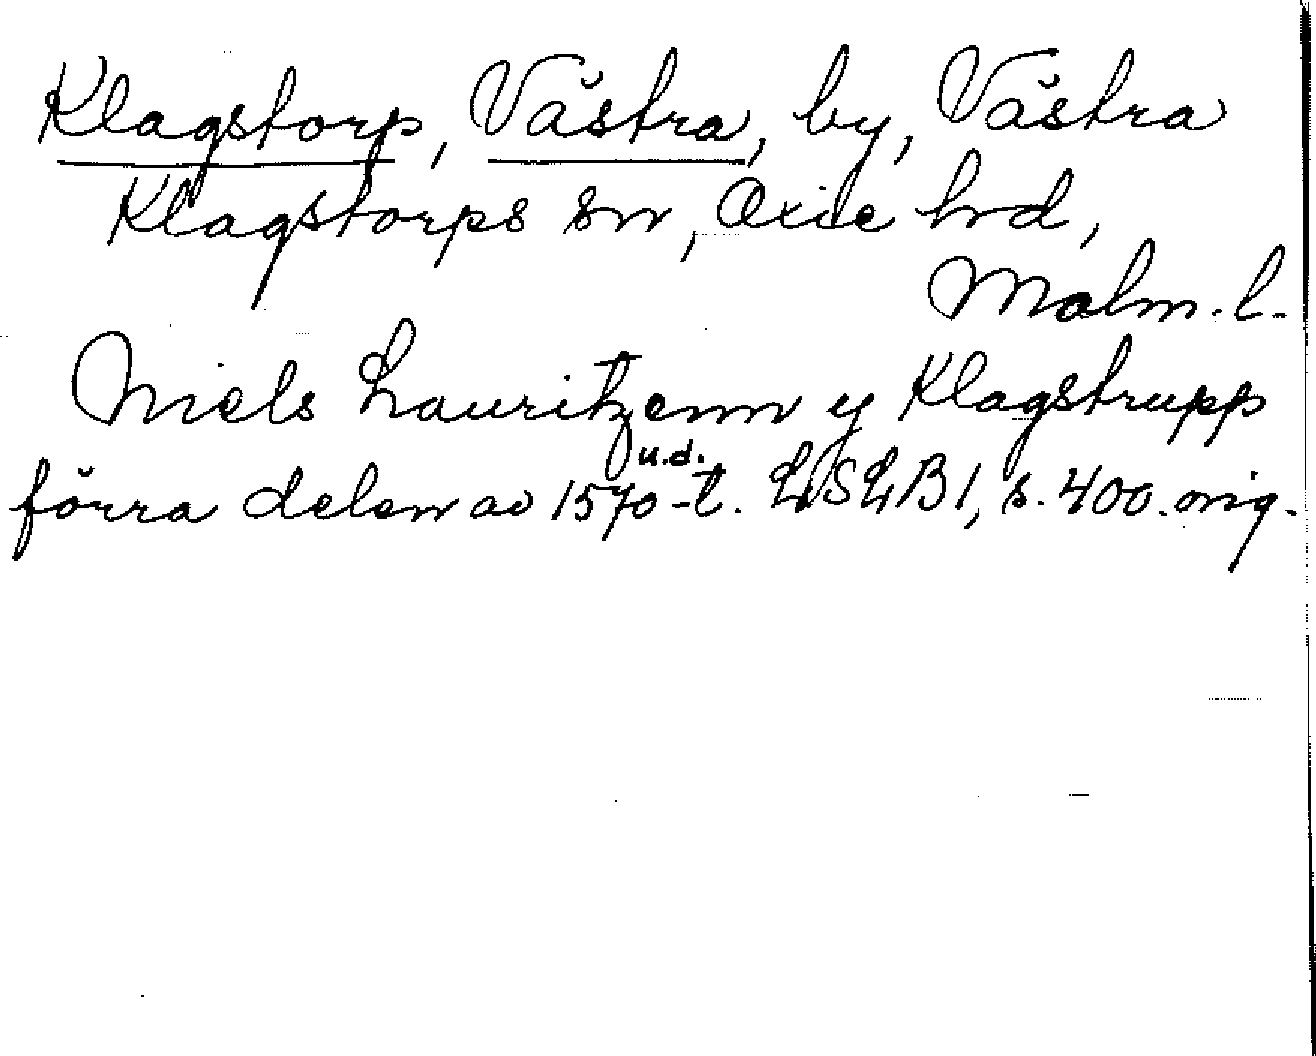 Klagstorp, Västra, by, Västra
Klagstorps sn, Oxie hrd,
Malm. l.
Niels Lauritzenn y Klagstrupp
u.d.
förra delen av 1570-t. LSLB1, s. 400. orig.